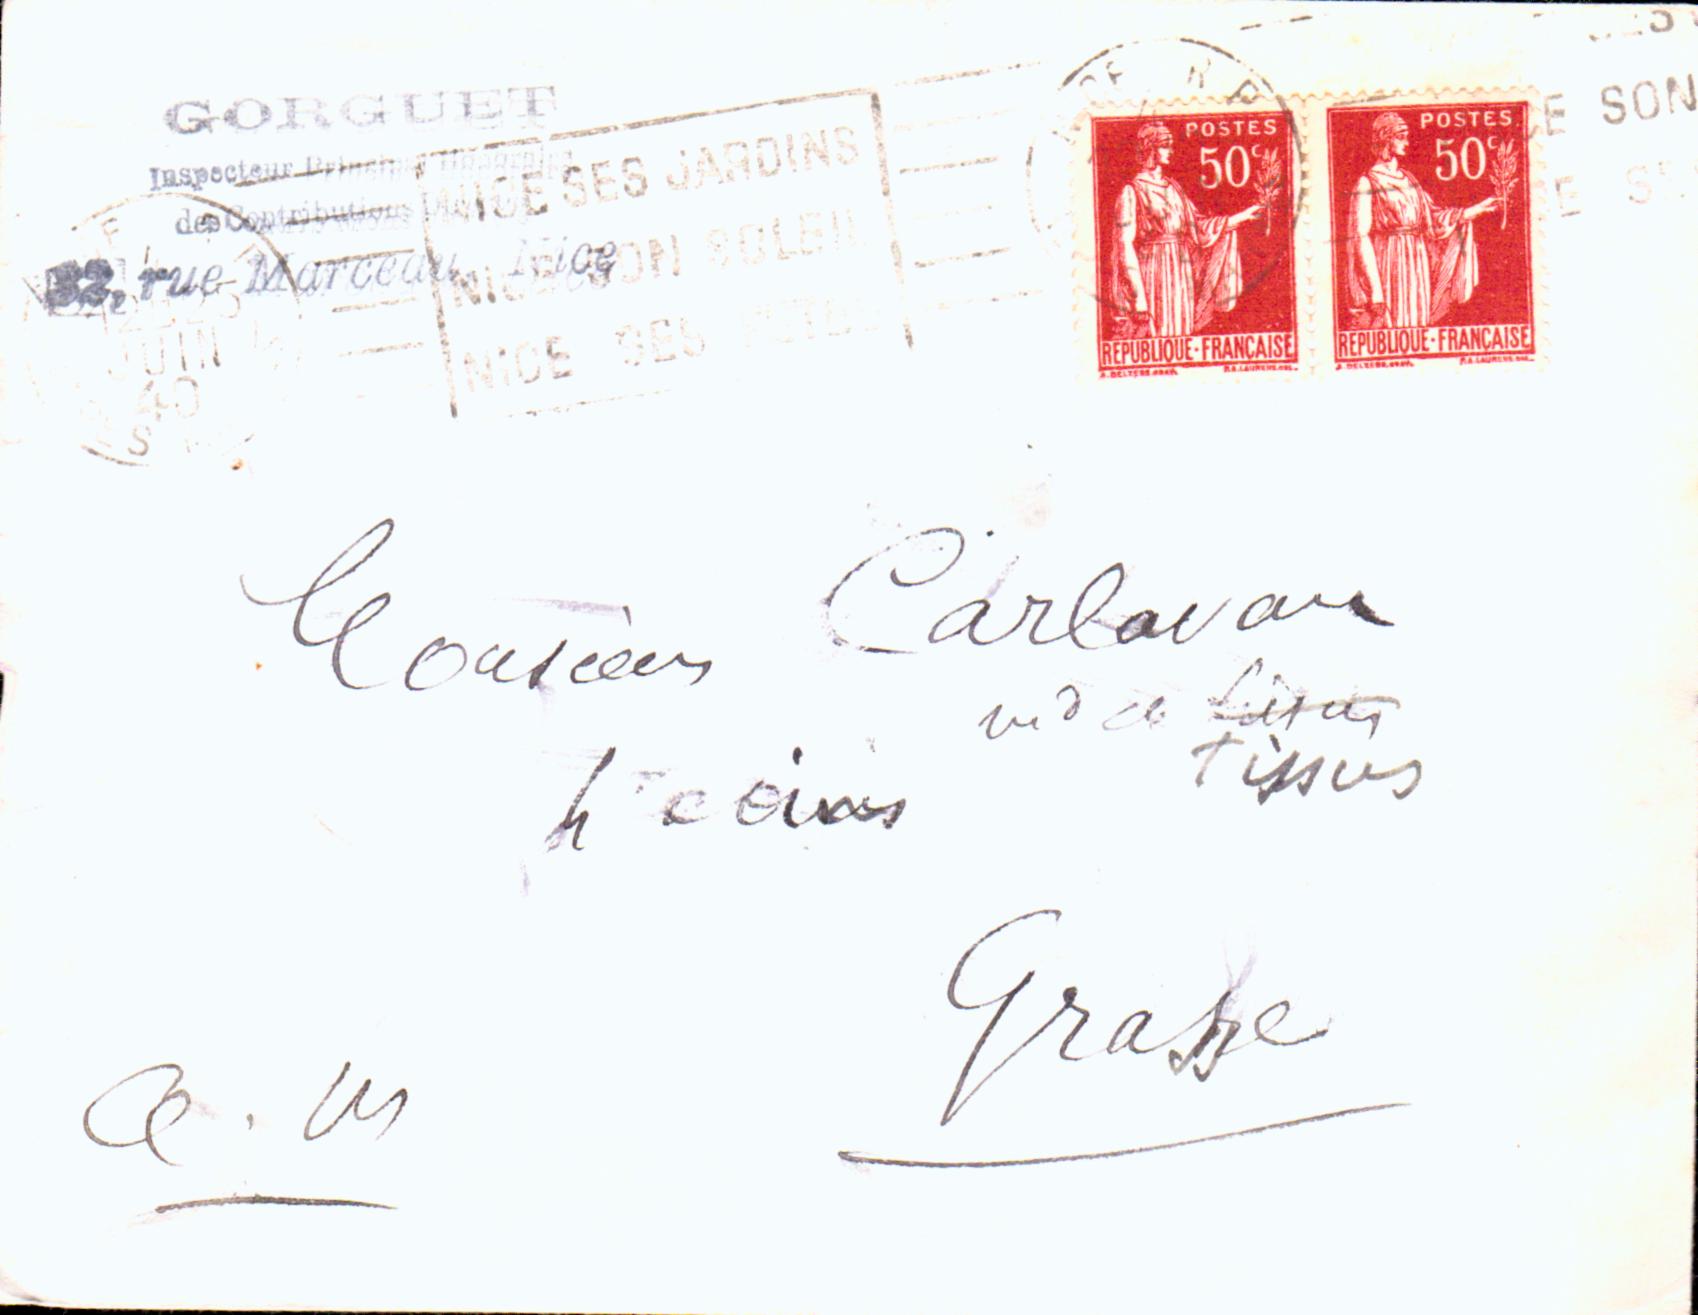 GORGUET
Inspecteur Principal Honoraire
des Contributions
32, rue Marceau, Nice
JUIN
40
NICE SES JARDINS
NICE SON SOLEIL
NICE SES FETES
POSTES
50c
REPUBLIQUE·FRANÇAISE
POSTES
50c
REPUBLIQUE·FRANÇAISE
CE SON
Monsieur Carlavan
md de
Tissus
Grasse
A. M